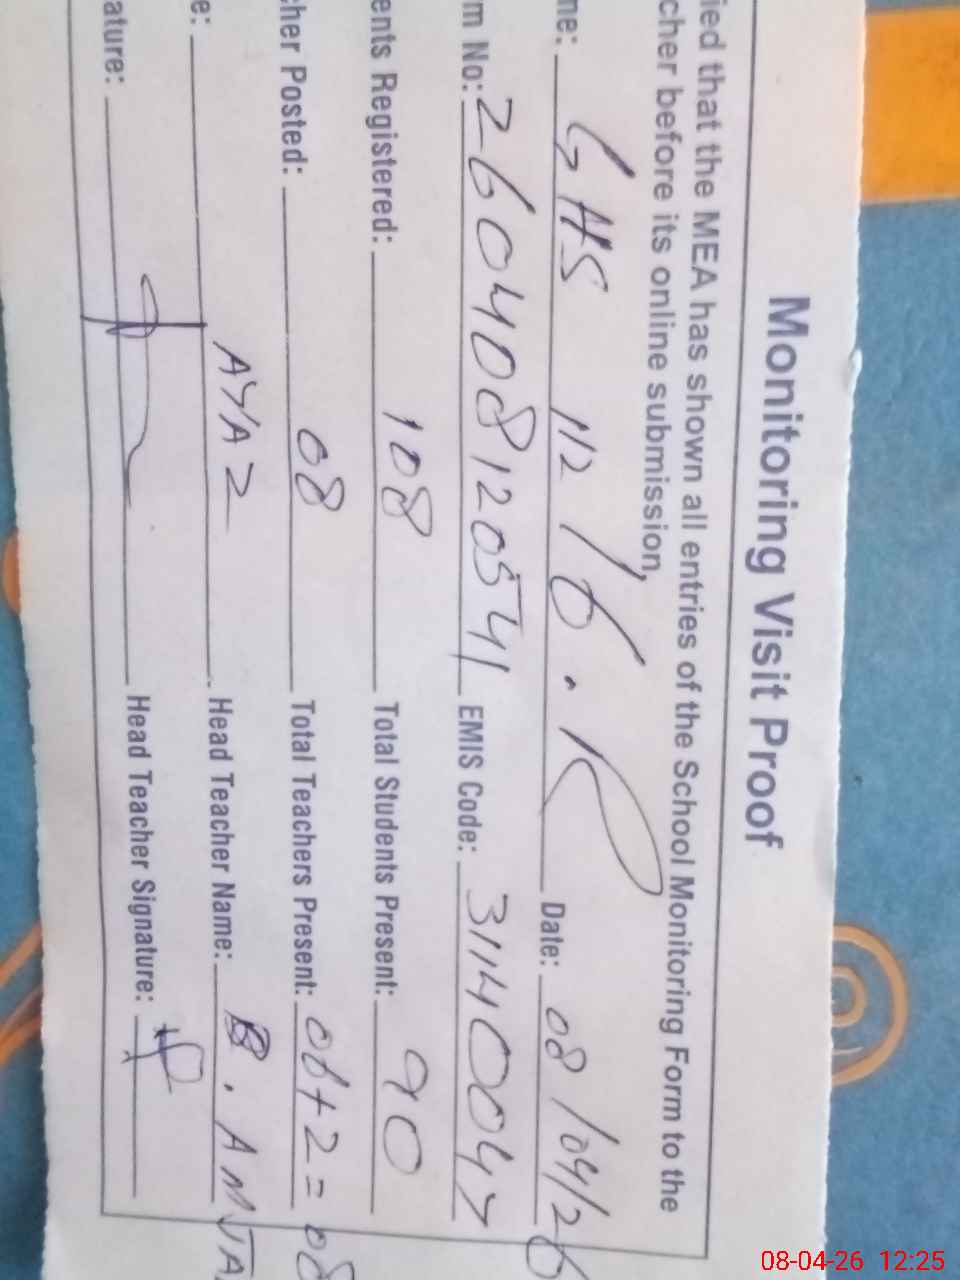 Monitoring Visit Proof
ied that the MEA has shown all entries of the School Monitoring Form to the
cher before its online submission,
me: GHS 112/6.R Date: 08/04/26
m No: 260408120541 EMIS Code: 31140047
ents Registered: 108 Total Students Present: 90
cher Posted: 08 Total Teachers Present: 06+2=08
e: AYAZ Head Teacher Name: B. AMJA
ature: Head Teacher Signature:
08-04-26 12:25